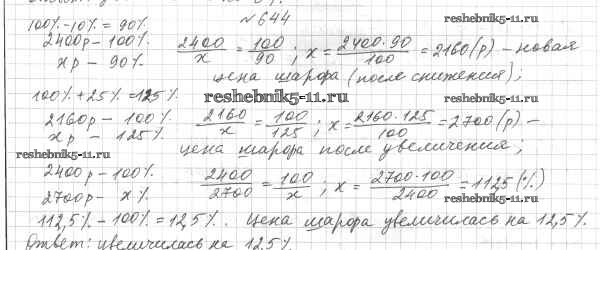 №644
reshebnik5-11.ru
100% - 10% = 90%
2400р - 100%
xр - 90%
2400/x = 100/90 ; x = 2400·90/100 = 2160 (р) - новая
цена шарфа (после снижения);
100% + 25% = 125%
reshebnik5-11.ru
reshebnik5-11.ru
2160р - 100%
xр - 125%
2160/x = 100/125 ; x = 2160·125/100 = 2700 (р) -
reshebnik5-11.ru
цена шарфа после увеличения;
2400р - 100%
2700р - x%
2400/2700 = 100/x ; x = 2700·100/2400 = 112,5 (%)
reshebnik5-11.ru
112,5% - 100% = 12,5%. Цена шарфа увеличилась на 12,5%.
Ответ: увеличилась на 12,5%.